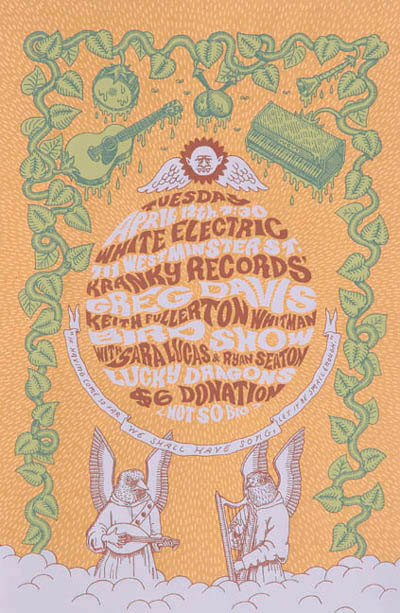 TUESDAY
APRIL 12th 7:30
WHITE ELECTRIC
711 WESTMINSTER ST:
KRANKY RECORDS'
GREG DAVIS
KEITH FULLERTON WHITMAN
BIRD SHOW
WITH SARA LUCAS & RYAN SEATON
LUCKY DRAGONS
$6 DONATION
NOT SO BIG
"HAVING COME SO FAR WE SHALL HAVE SONG, LET IT BE SMALL ENOUGH"